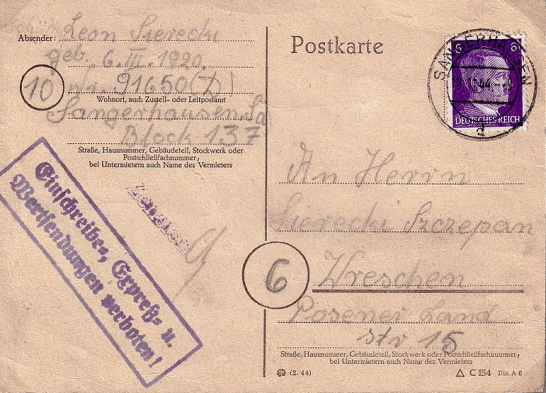 Absender: Leon Sierecki
geb. 6. III. 1920.
Nr. 91650 (D)
10
Wohnort, auch Zustell- oder Leitpostamt
Sangerhausen
Block 137
Straße, Hausnummer, Gebäudeteil, Stockwerk oder
Postschließfachnummer,
bei Untermietern auch Name des Vermieters
Einschreibe-, Expreß- u.
Wertsendungen verboten!
Postkarte
6 6
DEUTSCHES REICH
SANGERHAUSEN
44
a
An Herrn
Sierecki Szczepan
6
Wreschen
Posener Land
str 15
Straße, Hausnummer, Gebäudeteil, Stockwerk oder Postschließfachnummer,
bei Untermietern auch Name des Vermieters
(2. 44)
C 154 Din A 6